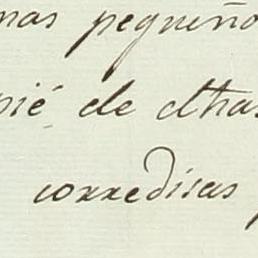 mas pequeño
pié de dhas
corredisas